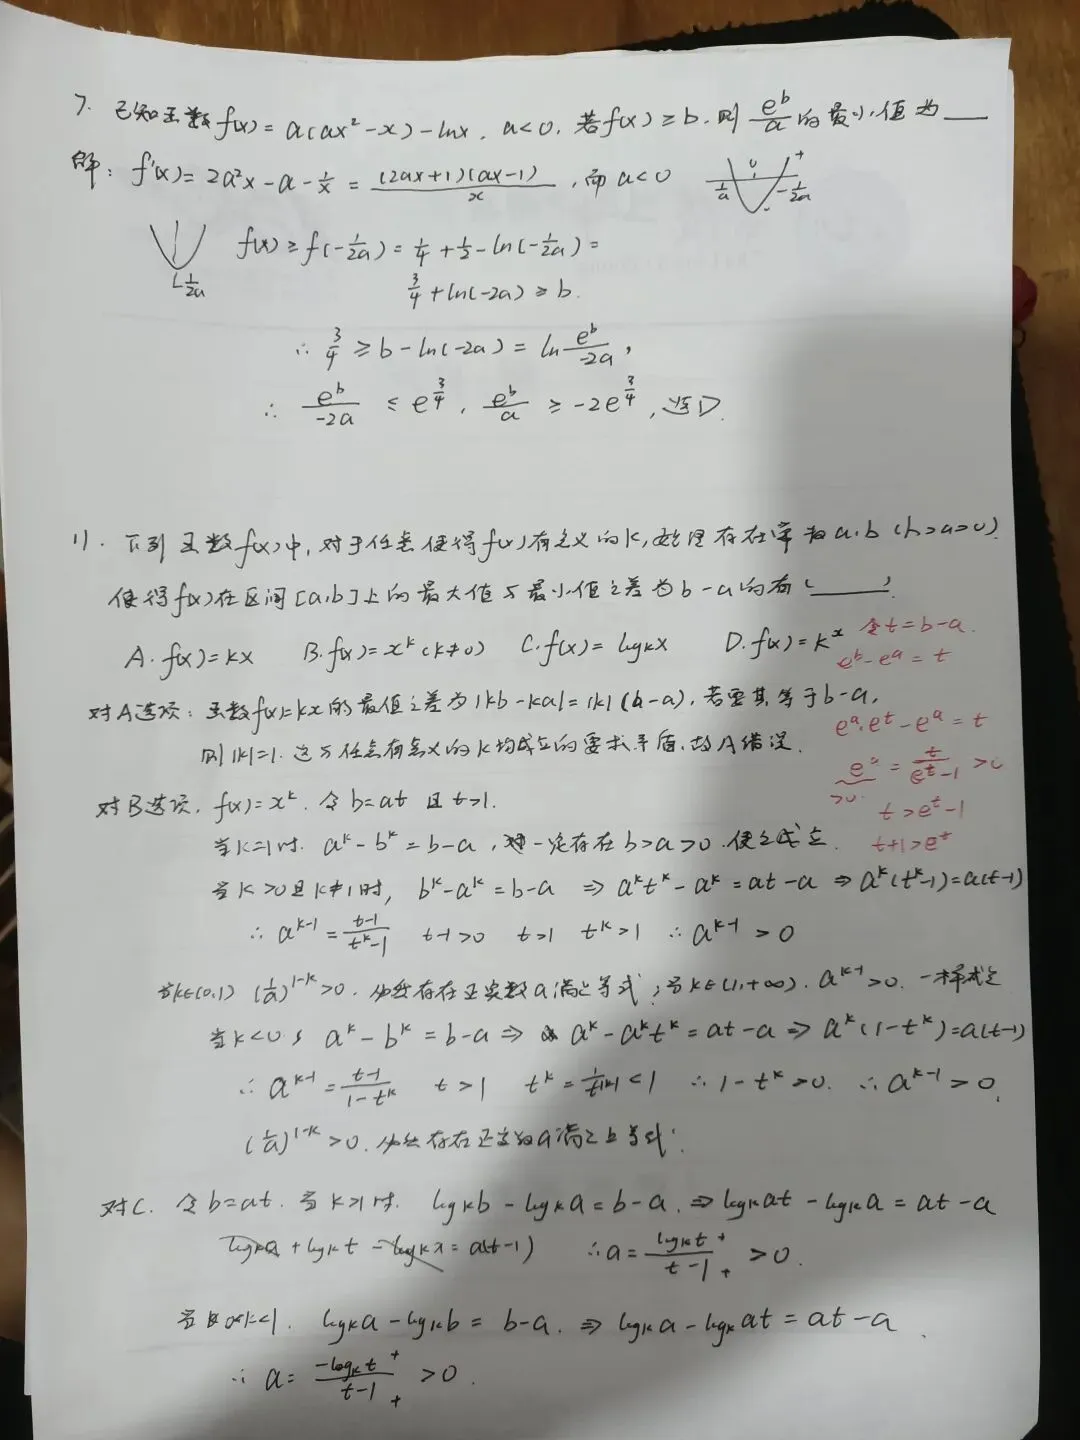 7. 已知函数f(x)=a(ax²-x)-lnx, a<0, 若f(x)≥b, 则 e^b/a 的最小值为___
解: f'(x)=2a²x-a-1/x = (2ax+1)(ax-1)/x , 而a<0 1/a 0 + - -1/2a
-1/2a f(x)≥f(-1/2a)=1/4+1/2-ln(-1/2a)=
3/4+ln(-2a)≥b.
∴ 3/4≥b-ln(-2a)=ln e^b/-2a,
∴ e^b/-2a ≤ e^(3/4), e^b/a ≥ -2e^(3/4), 选D.
11. 下列函数f(x)中, 对于任意使得f(x)有意义的k, 始终存在常数a,b(b>a>0)
使得f(x)在区间[a,b]上的最大值与最小值之差为b-a的有(___).
A. f(x)=kx B. f(x)=x^k(k≠0) C. f(x)=log_k x D. f(x)=k^x
令t=b-a.
e^b-e^a=t
e^a·e^t-e^a=t
e^a=t/(e^t-1)>0
>0.
t>e^t-1
t+1>e^t
对A选项: 函数f(x)=kx的最值之差为|kb-ka|=|k|(b-a), 若要其等于b-a,
则|k|=1. 这与任意有意义的k均成立的要求矛盾, 故A错误.
对B选项, f(x)=x^k. 令b=at 且t>1.
当k=1时. a^k-b^k=b-a, 一定存在b>a>0.使之成立.
当k>0且k≠1时, b^k-a^k=b-a ⇒ a^k t^k-a^k=at-a ⇒ a^k(t^k-1)=a(t-1)
∴ a^(k-1)=(t-1)/(t^k-1) t-1>0 t>1 t^k>1 ∴ a^(k-1)>0
当k∈(0,1) (1/a)^(1-k)>0. 必然存在正实数a满足等式; 当k∈(1,+∞). a^(k-1)>0. 一样成立
当k<0时 a^k-b^k=b-a ⇒ a^k-a^k t^k=at-a ⇒ a^k(1-t^k)=a(t-1)
∴ a^(k-1)=(t-1)/(1-t^k) t>1 t^k=1/t^|k|<1 ∴ 1-t^k>0. ∴ a^(k-1)>0,
(1/a)^(1-k)>0. 必然存在正实数a满足上等式.
对C. 令b=at. 当k>1时. log_k b-log_k a=b-a. ⇒ log_k at-log_k a=at-a
log_k a+log_k t-log_k x=a(t-1) ∴ a=log_k t/(t-1) + + >0.
当0<k<1. log_k a-log_k b=b-a. ⇒ log_k a-log_k at=at-a.
∴ a=-log_k t/(t-1) + + >0.